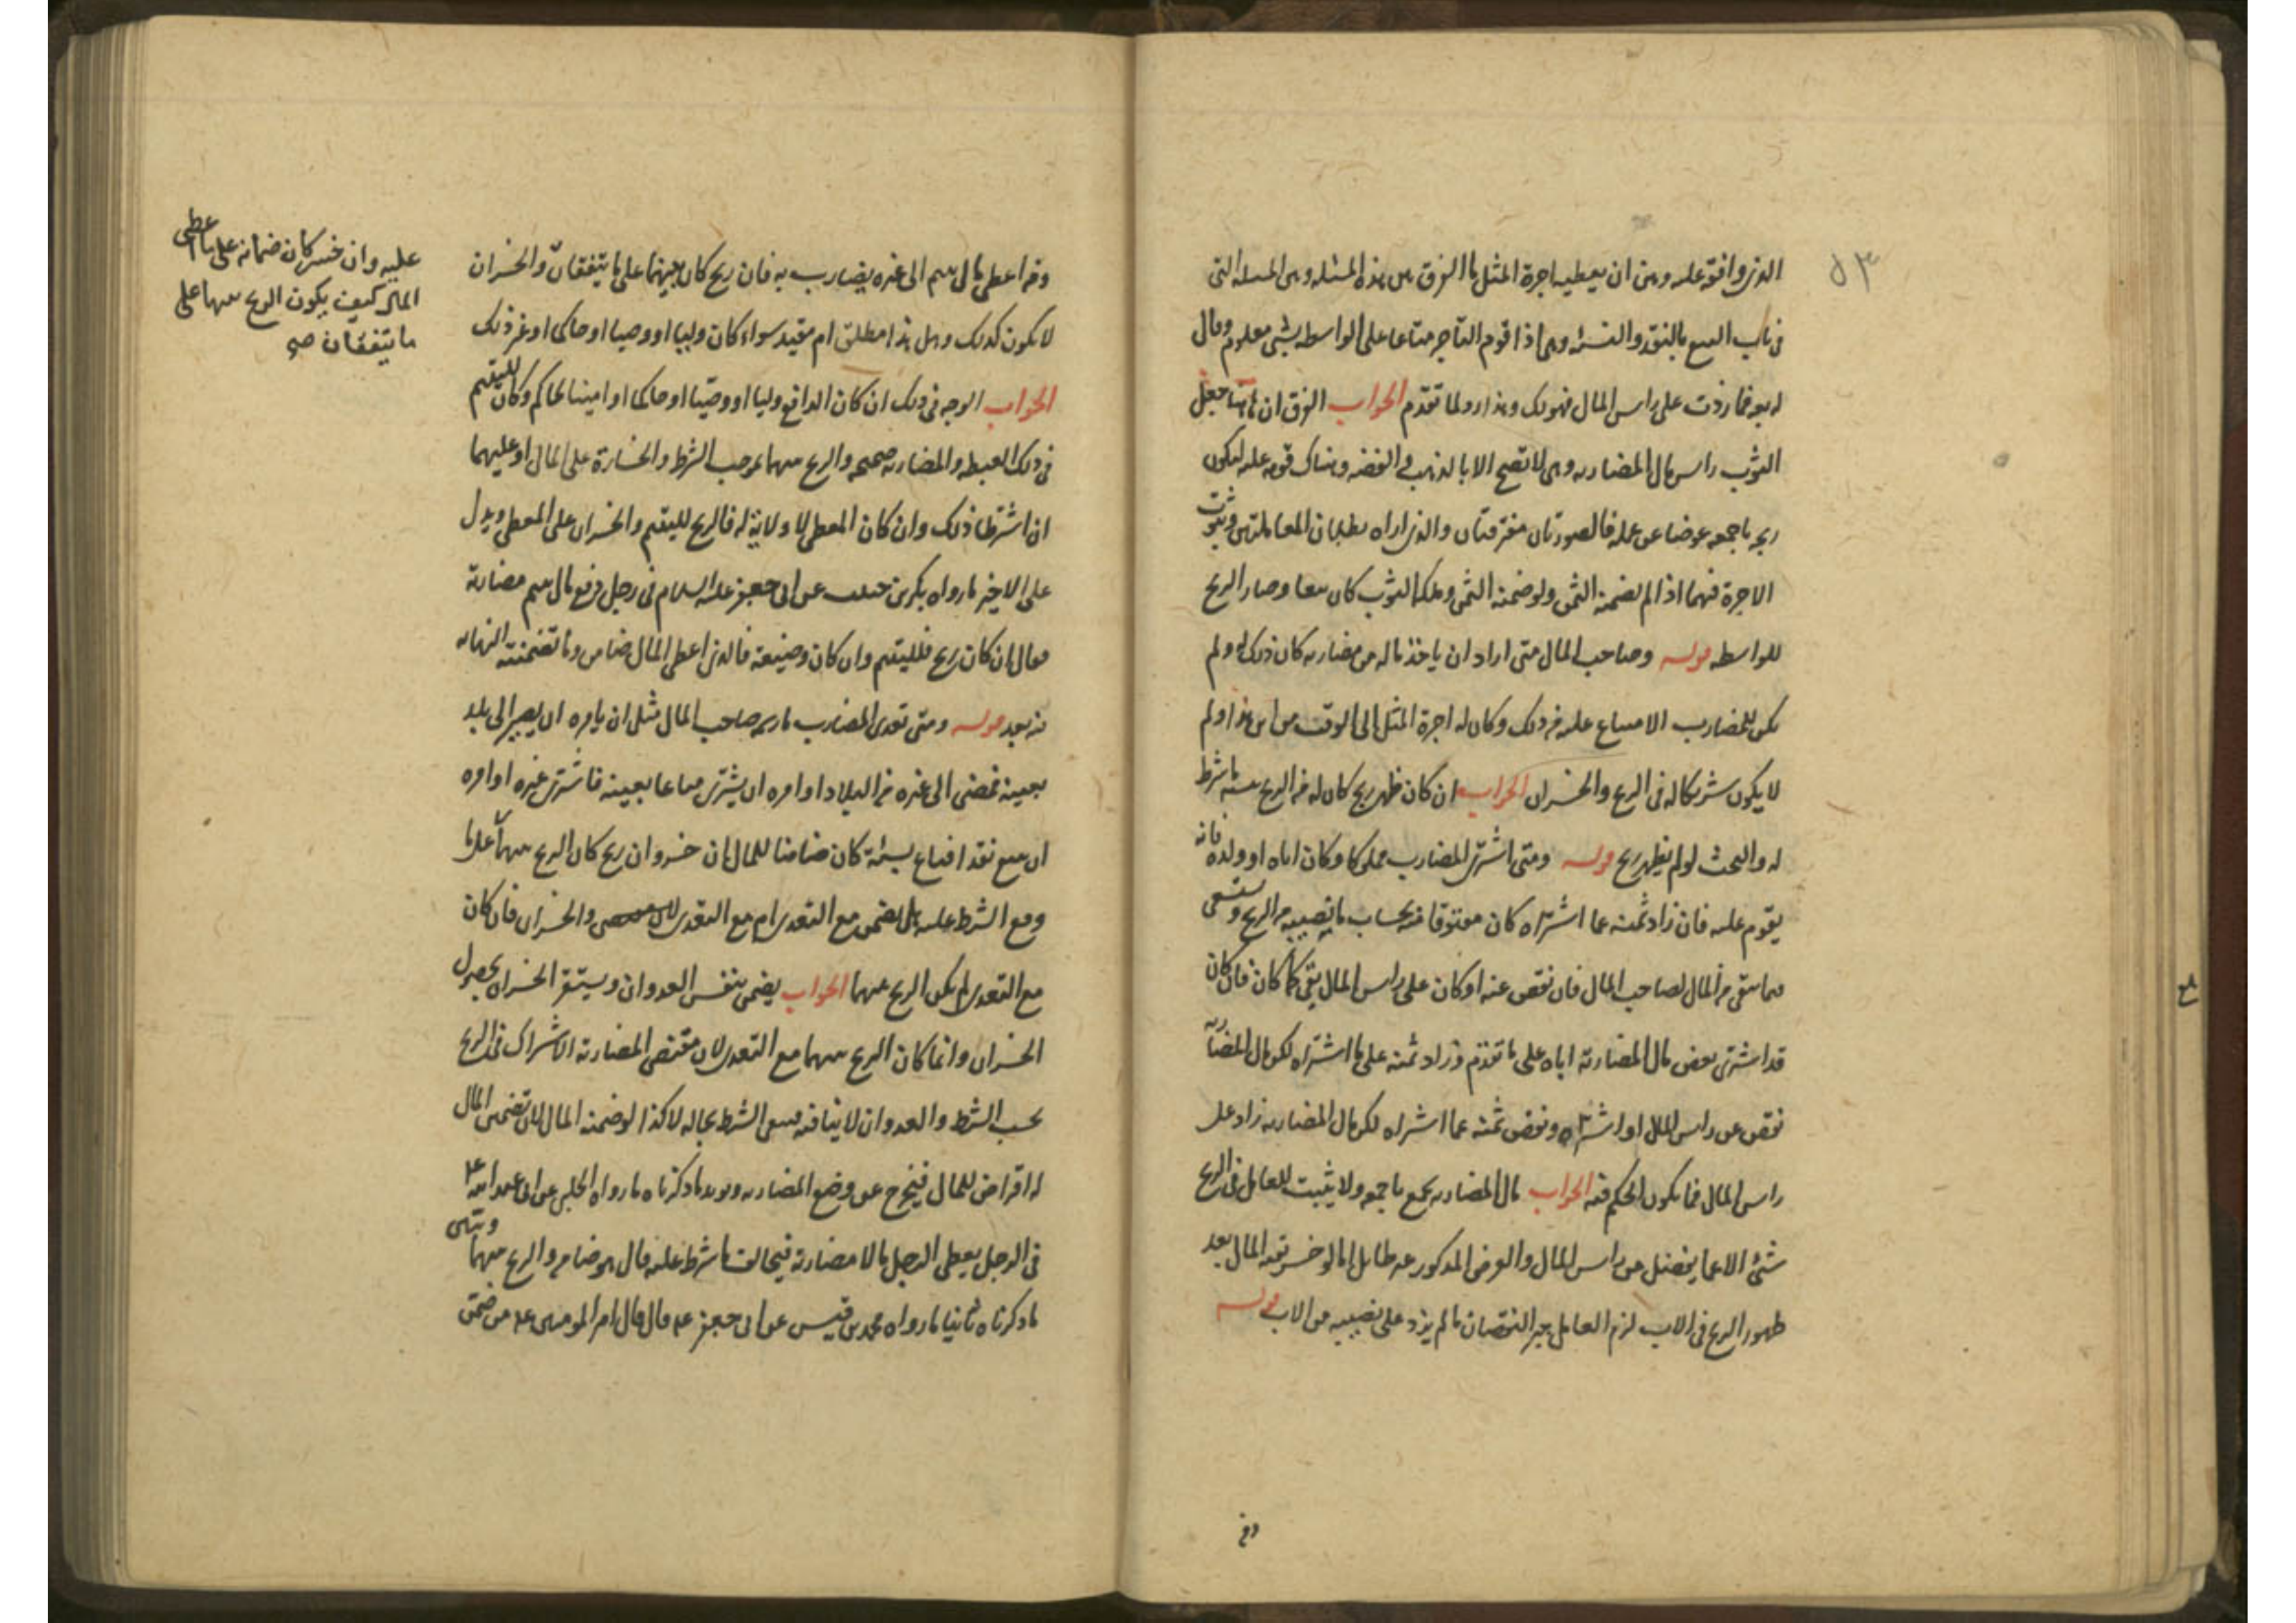 ٥٣
الذى وافقه عليه وبين ان يعطيه اجرة المثل ما الفرق بين هذه المسئله وبين المسئله التى
فى باب البيع بالنقد والنسئه وهى اذا قوم التاجر متاعا على الواسطه بشئ معلوم وقال
له بعه فما زدت على راس المال فهو لك وهذا رد لما تقدم الجواب الفرق ان هاهنا جعل
الثوب راس مال المضاربه وهى لا تصح الا بالذهب والفضه وهناك قومه عليه ليكون
ربحه باجمعه عوضا عن عمله فالصورتان مفترقتان والذى اراه بطلان المعاملتين وثبوت
الاجرة فيهما اذا لم يضمنه الثمن ولو ضمنه الثمن وملك الثوب كان بيعا وصار الربح
للواسطه قوله وصاحب المال متى اراد ان ياخذ ماله من مضاربه كان ذلك له ولم
يكن للمضارب الامتناع عليه فى ذلك وكان له اجرة المثل الى الوقت من اين هذا ولم
لا يكون شريكا له فى الربح والخسران الجواب ان كان ظهر ربح كان له من الربح بنسبه ما شرط
له والبحث لو لم يظهر ربح قوله ومتى اشترى المضارب مملوكا وكان اباه او ولده فانه
يقوم عليه فان زاد ثمنه عما اشتراه كان معتوقا منه بحساب ما يصيبه من الربح ويستسعى
فيما بقى من المال لصاحب المال فان نقص عنه او كان على راس المال بقى كما كان فان كان
قد اشترى ببعض مال المضاربة اباه على ما تقدم وزاد ثمنه على ما اشتراه لكن مال المضاربه
نقص عن راس المال او اشتراه ونقص ثمنه عما اشتراه لكن مال المضاربه زاد على
راس المال فما يكون الحكم فيه الجواب مال المضاربه يجمع باجمعه ولا يثبت للعامل فى الربح
شئ الا عما يفضل من راس المال والعرض المذكور غير طايل اما لو خسر بقيه المال بعد
ظهور الربح فى الاب لزم العامل جبر النقصان ما لم يزد على نصيبه من الاب قوله
ومن
ومن اعطى مال يتيم الى غيره يضارب به فان ربح كان بينهما على ما يتفقان والخسران
لا يكون كذلك وهل هذا مطلق ام مقيد سواء كان وليا او وصيا او حاكما او غير ذلك
الجواب الوجه فى ذلك ان كان الدافع وليا او وصيا او حاكما او امينا لحاكم وكان لليتيم
فى ذلك الغبطه والمضاربه صحيحه والربح بينهما بموجب الشرط والخسارة على المال او عليهما
ان اشترطا ذلك وان كان المعطى لا ولاية له فالربح لليتيم والخسران على المعطى ويدل
على الاخير ما رواه بكر بن حبيب عن ابى جعفر عليه السلام فى رجل دفع مال يتيم مضاربة
فقال ان كان ربح فلليتيم وان كان وضيعة فالذى اعطى المال ضامن وما تضمنته النهايه
قوله ومتى تعدى المضارب ما رسمه صاحب المال مثل ان يامره ان يصير الى بلد
بعينه فمضى الى غيره من البلاد او امره ان يشترى متاعا بعينه فاشترى غيره او امره
ان يبيع نقدا فباع نسئة كان ضامنا للمال ان خسر وان ربح كان الربح بينهما على ما
وقع الشرط عليه هل يضمن مع التعدى ام مع التعدى والخسران فان كان
مع التعدى لم يكن الربح بينهما الجواب يضمن بنفس العدوان ويستقر الخسران بحصول
الخسران وانما كان الربح بينهما مع التعدى لان مقتضى المضاربة الاشتراك فى الربح
بحسب الشرط والعدوان لا ينافيه فيبقى الشرط بحاله لا كذا لو ضمنه المال لان تضمين المال
له اقراض للمال فيخرج عن وضع المضاربه ويويد ما ذكرناه ما رواه الحلبى عن ابى عبد الله ع
فى الرجل يعطى الرجل مالا مضاربة فيخالف ما شرط عليه قال هو ضامن والربح بينهما
ما ذكرناه ثانيا ما رواه محمد بن قيس عن ابى جعفر ع قال قال امير المومنين ع من ضمن
عليه وان خسر كان ضمانه على ما اعطى
المال كيف يكون الربح بينهما على
ما يتفقان صح